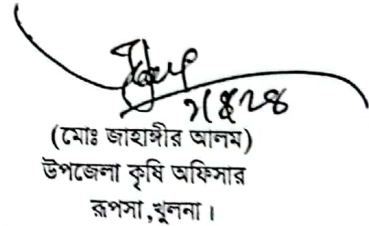 (মোঃ জাহাঙ্গীর আলম)
উপজেলা কৃষি অফিসার
রূপসা,খুলনা।